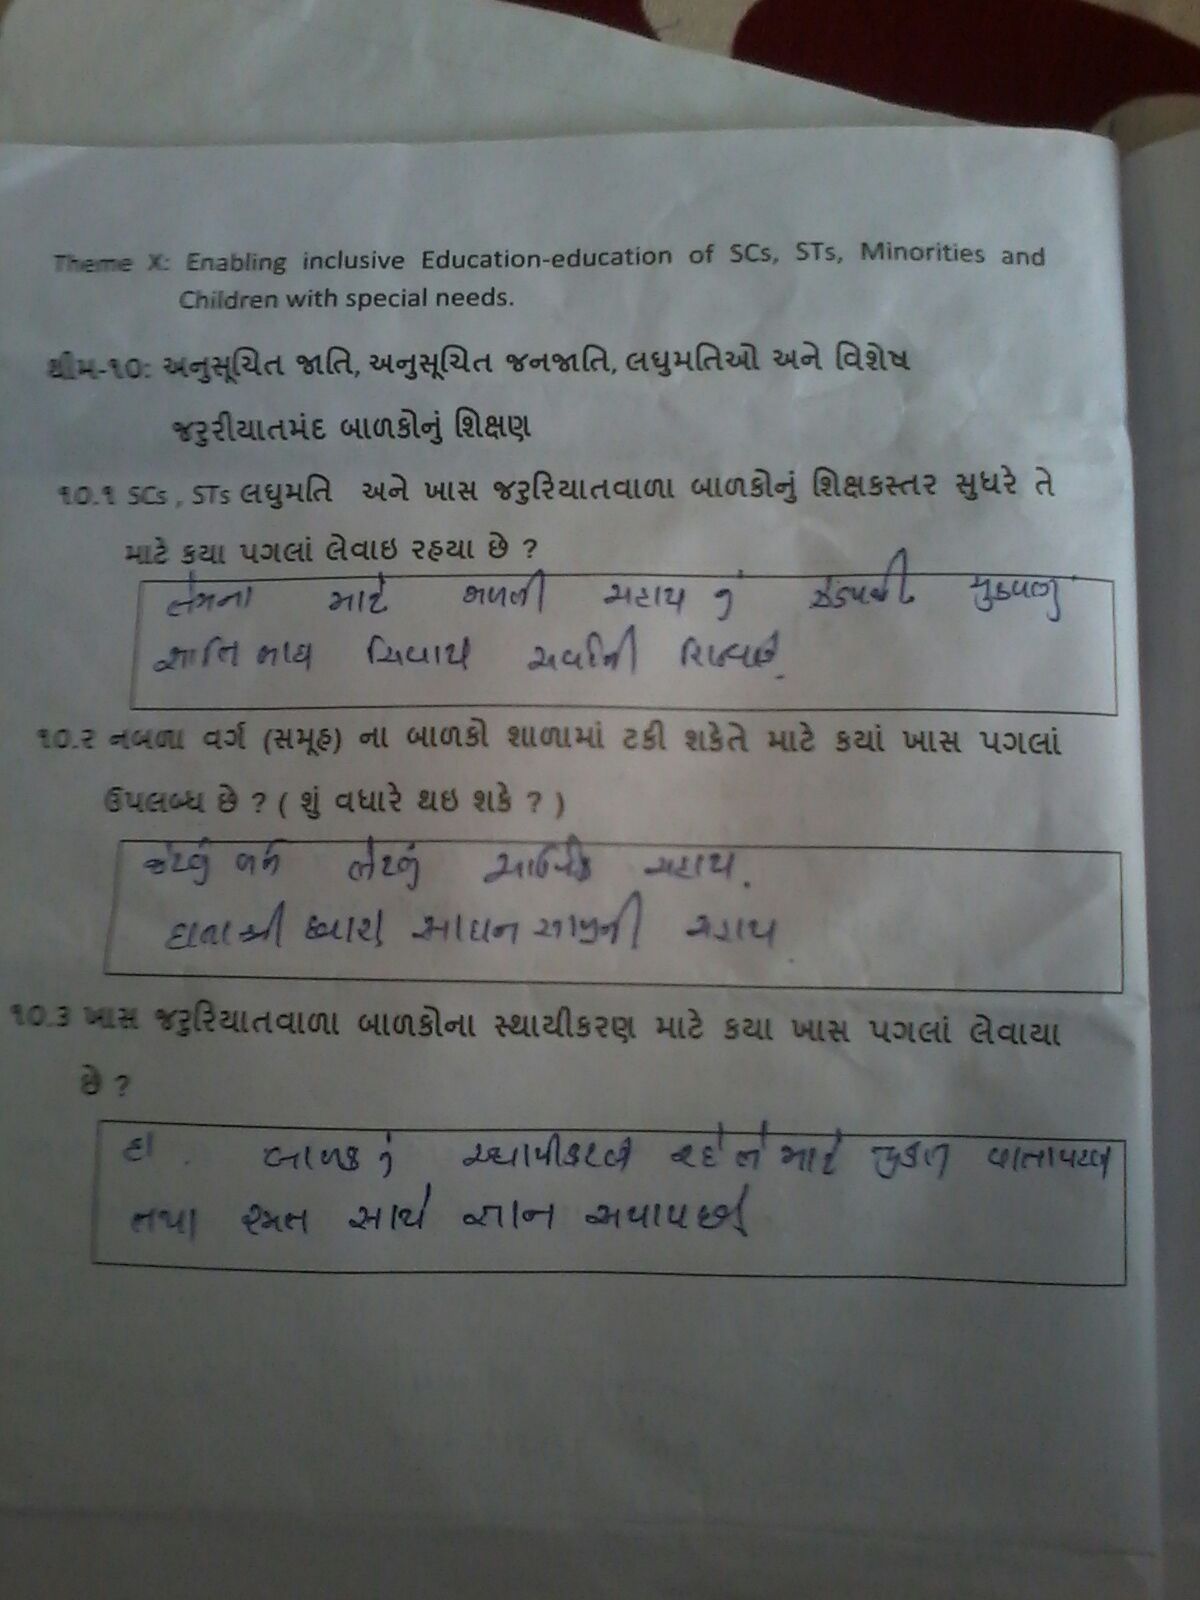 Theme X: Enabling inclusive Education-education of SCs, STs, Minorities and
Children with special needs.
થીમ-૧૦: અનુસૂચિત જાતિ, અનુસૂચિત જનજાતિ, લઘુમતિઓ અને વિશેષ
જરુરીયાતમંદ બાળકોનું શિક્ષણ
૧૦.૧ SCs , STs લઘુમતિ અને ખાસ જરુરિયાતવાળા બાળકોનું શિક્ષકસ્તર સુધરે તે
માટે કયા પગલાં લેવાઇ રહયા છે ?
તેમના માટે મળતી સહાય નું ઝડપથી ચુકવણું
જાતિ ભાવ સિવાય
૧૦.૨ નબળા વર્ગ (સમૂહ) ના બાળકો શાળામાં ટકી શકેતે માટે કયાં ખાસ પગલાં
ઉપલબ્ધ છે ? ( શું વધારે થઇ શકે ? )
આર્થિક સહાય.
દાતાશ્રી દ્વારા સાધન સામગ્રી સહાય
૧૦.૩ ખાસ જરુરિયાતવાળા બાળકોના સ્થાયીકરણ માટે કયા ખાસ પગલાં લેવાયા
છે ?
હા . બાળક નું સ્થાયીકરણ રહે તે માટે મુક્ત વાતાવરણ
તથા રમત સાથે જ્ઞાન અપાય છે.